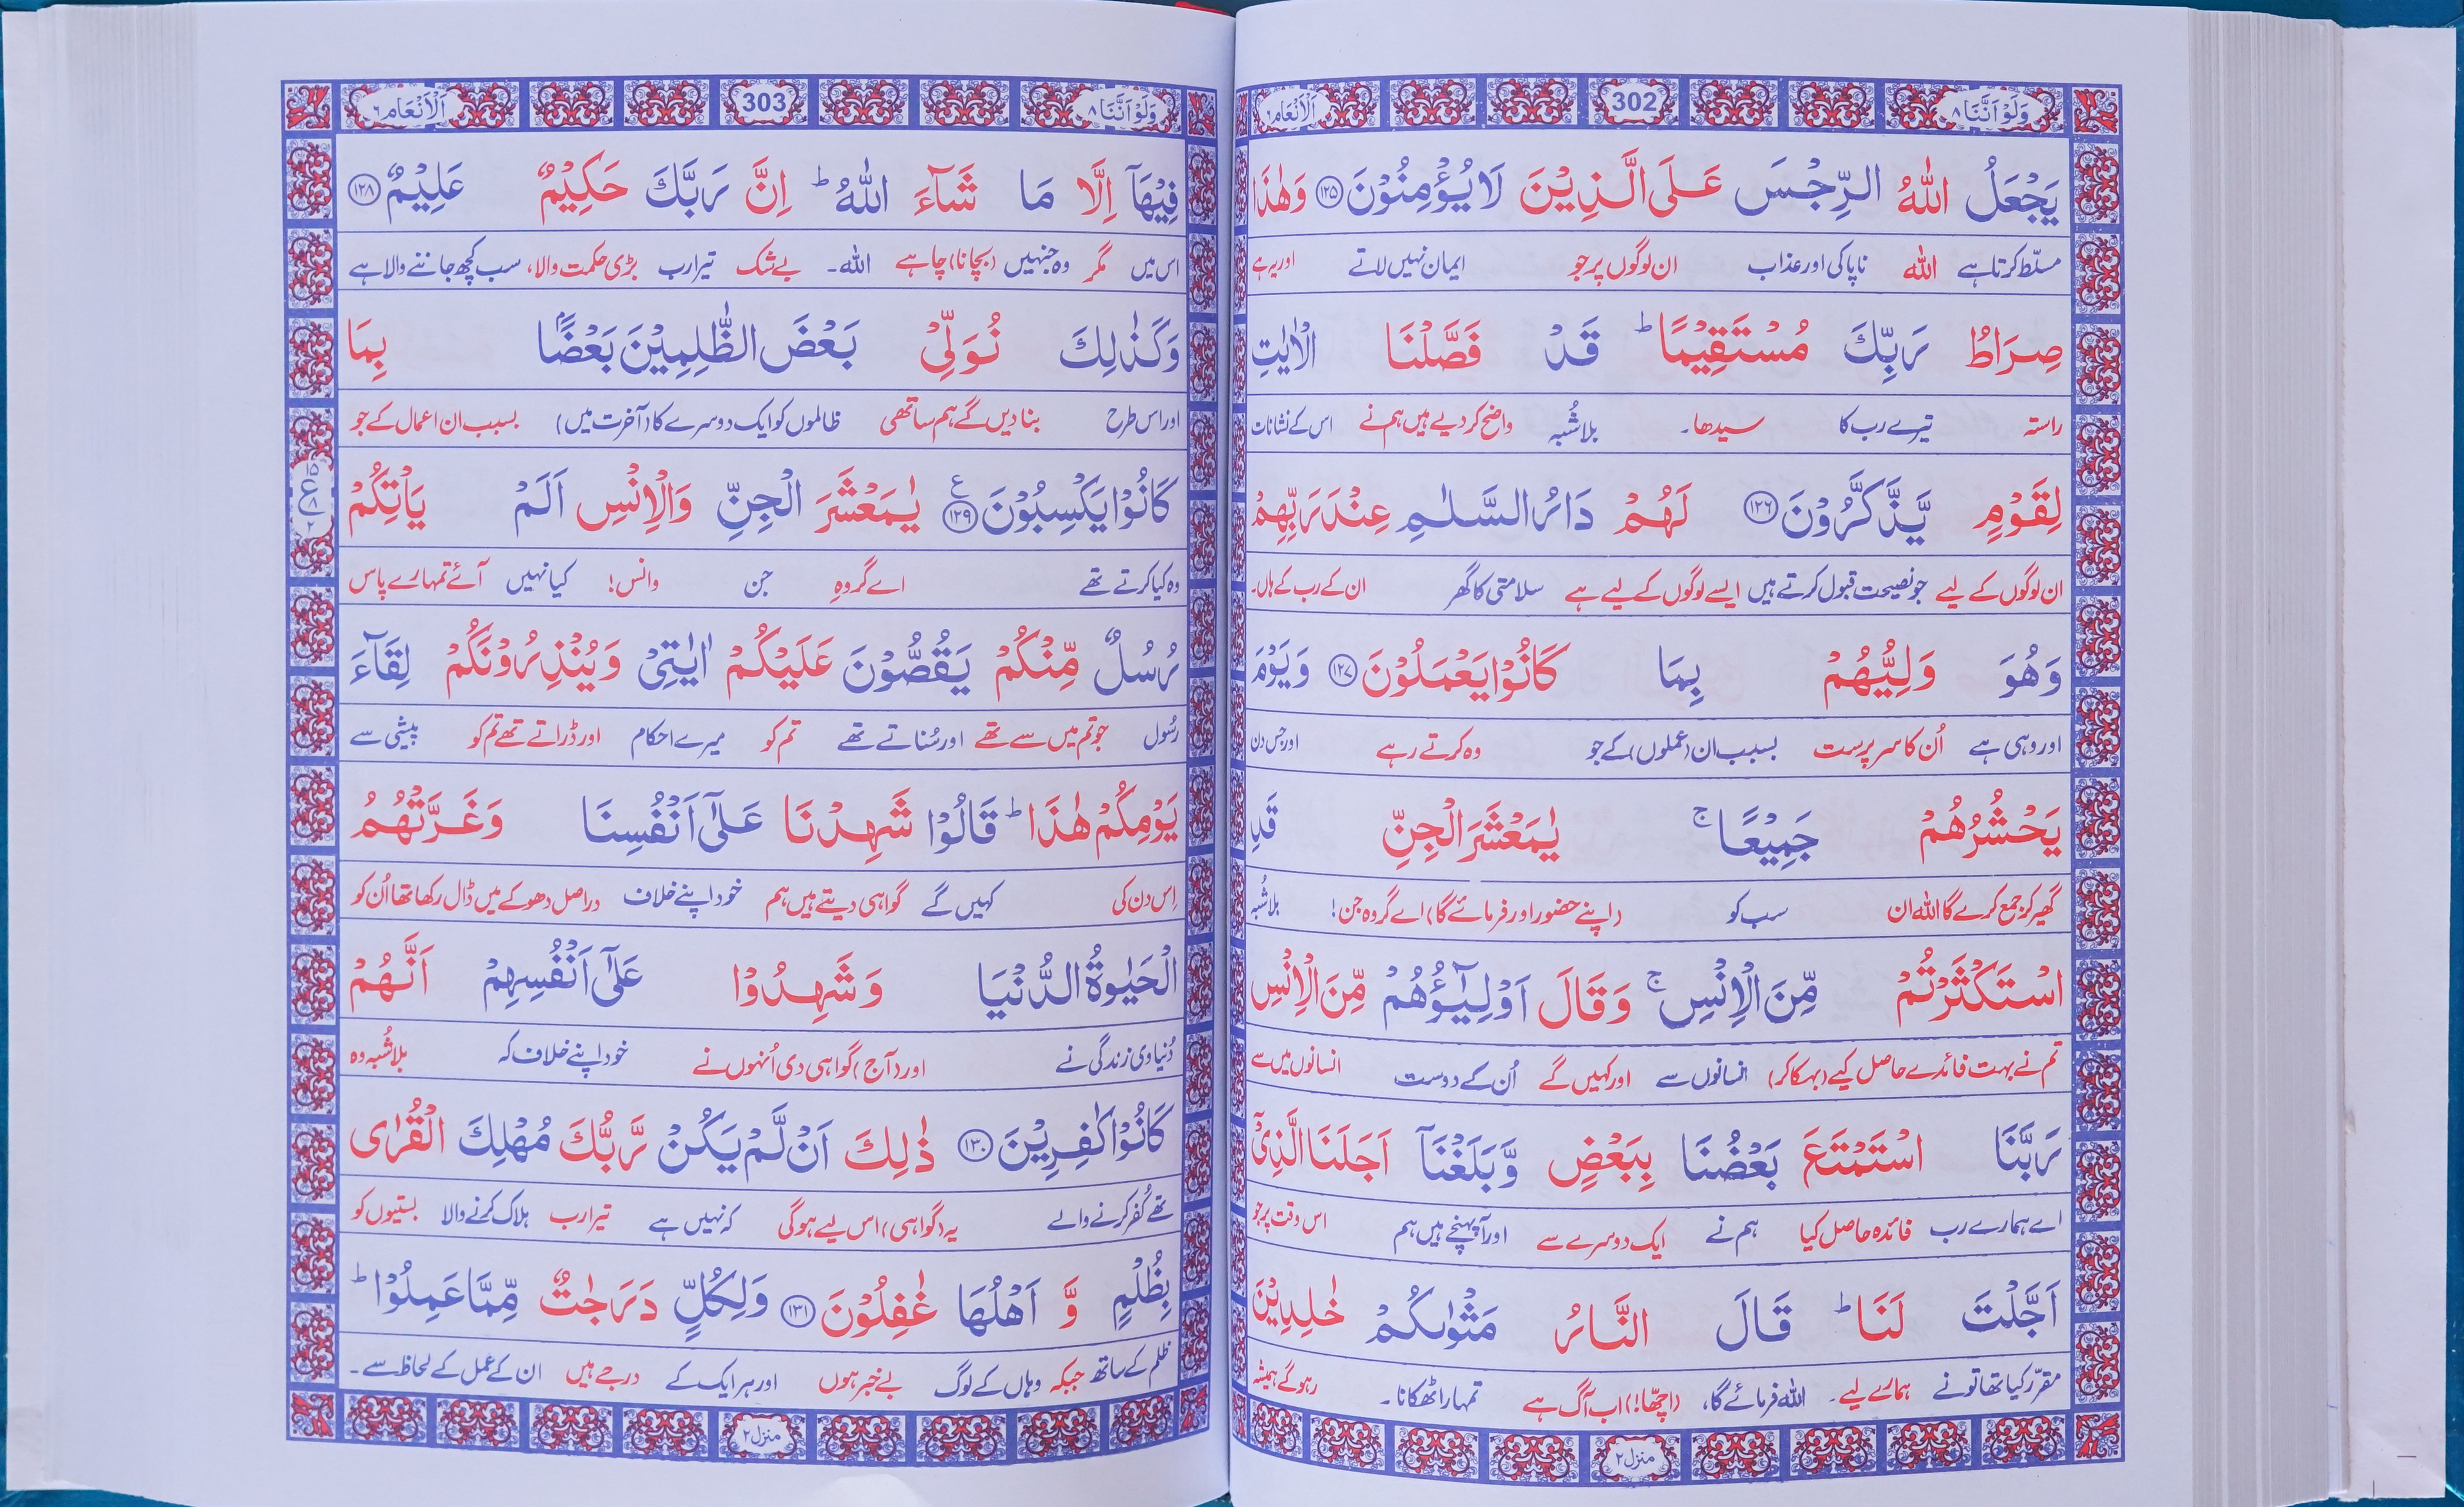 وَلَوْ اَنَّنَا ٨ 302 اَلْاَنْعَام ٦
يَجْعَلُ اللّٰهُ الرِّجْسَ عَلَى الَّذِيْنَ لَا يُؤْمِنُوْنَ ۝۱۲۵ وَهٰذَا
مسلّط کرتا ہے اللہ ناپاکی اور عذاب ان لوگوں پر جو ایمان نہیں لاتے اور یہ ہے
صِرَاطُ رَبِّكَ مُسْتَقِيْمًا ؕ قَدْ فَصَّلْنَا الْاٰيٰتِ
راستہ تیرے رب کا سیدھا۔ بلاشُبہ واضح کر دیے ہیں ہم نے اس کے نشانات
لِقَوْمٍ يَّذَّكَّرُوْنَ ۝۱۲۶ لَهُمْ دَارُ السَّلٰمِ عِنْدَ رَبِّهِمْ
ان لوگوں کے لیے جو نصیحت قبول کرتے ہیں ایسے لوگوں کے لیے ہے سلامتی کا گھر ان کے رب کے ہاں۔
وَهُوَ وَلِيُّهُمْ بِمَا كَانُوْا يَعْمَلُوْنَ ۝۱۲۷ وَيَوْمَ
اور وہی ہے اُن کا سرپرست بسبب ان (عملوں) کے جو وہ کرتے رہے اور جس دن
يَحْشُرُهُمْ جَمِيْعًا ۚ يٰمَعْشَرَ الْجِنِّ قَدِ
گھیر کر جمع کرے گا اللہ ان سب کو (اپنے حضور اور فرمائے گا) اے گروہ جن! بلاشُبہ
اسْتَكْثَرْتُمْ مِّنَ الْاِنْسِ ۚ وَقَالَ اَوْلِيٰٓـؤُهُمْ مِّنَ الْاِنْسِ
تم نے بہت فائدے حاصل کیے (بہکا کر) انسانوں سے اور کہیں گے اُن کے دوست انسانوں میں سے
رَبَّنَا اسْتَمْتَعَ بَعْضُنَا بِبَعْضٍ وَّبَلَغْنَآ اَجَلَنَا الَّذِيْٓ
اے ہمارے رب فائدہ حاصل کیا ہم نے ایک دوسرے سے اور آپہنچے ہیں ہم اس وقت پر جو
اَجَّلْتَ لَنَا ؕ قَالَ النَّارُ مَثْوٰىكُمْ خٰلِدِيْنَ
مقرّر کیا تھا تو نے ہمارے لیے۔ اللہ فرمائے گا، (اچھّا!) اب آگ ہے تمہارا ٹھکانا۔ رہو گے ہمیشہ
منزل ٢
وَلَوْ اَنَّنَا ٨ 303 اَلْاَنْعَام ٦
فِيْهَآ اِلَّا مَا شَآءَ اللّٰهُ ؕ اِنَّ رَبَّكَ حَكِيْمٌ عَلِيْمٌ ۝۱۲۸
اس میں مگر وہ جنہیں (بچانا) چاہے اللہ۔ بے شک تیرا رب بڑی حکمت والا، سب کچھ جاننے والا ہے
وَكَذٰلِكَ نُوَلِّيْ بَعْضَ الظّٰلِمِيْنَ بَعْضًا ۢ بِمَا
اور اس طرح بنا دیں گے ہم ساتھی ظالموں کو ایک دوسرے کا (آخرت میں) بسبب ان اعمال کے جو
كَانُوْا يَكْسِبُوْنَ ۝۱۲۹ ع يٰمَعْشَرَ الْجِنِّ وَالْاِنْسِ اَلَمْ يَاْتِكُمْ
وہ کیا کرتے تھے اے گروہِ جن وانس! کیا نہیں آئے تمہارے پاس
رُسُلٌ مِّنْكُمْ يَقُصُّوْنَ عَلَيْكُمْ اٰيٰتِيْ وَيُنْذِرُوْنَكُمْ لِقَآءَ
رسُول جو تم میں سے تھے اور سُناتے تھے تم کو میرے احکام اور ڈراتے تھے تم کو پیشی سے
يَوْمِكُمْ هٰذَا ؕ قَالُوْا شَهِدْنَا عَلٰٓى اَنْفُسِنَا وَغَرَّتْهُمُ
اِس دن کی کہیں گے گواہی دیتے ہیں ہم خود اپنے خلاف دراصل دھوکے میں ڈال رکھا تھا اُن کو
الْحَيٰوةُ الدُّنْيَا وَشَهِدُوْا عَلٰٓى اَنْفُسِهِمْ اَنَّهُمْ
دُنیاوی زندگی نے اور (آج) گواہی دی اُنہوں نے خود اپنے خلاف کہ بلاشُبہ وہ
كَانُوْا كٰفِرِيْنَ ۝۱۳۰ ذٰلِكَ اَنْ لَّمْ يَكُنْ رَّبُّكَ مُهْلِكَ الْقُرٰى
تھے کُفر کرنے والے یہ (گواہی) اس لیے ہوگی کہ نہیں ہے تیرا رب ہلاک کرنے والا بستیوں کو
بِظُلْمٍ وَّ اَهْلُهَا غٰفِلُوْنَ ۝۱۳۱ وَلِكُلٍّ دَرَجٰتٌ مِّمَّا عَمِلُوْا ؕ
ظلم کے ساتھ جبکہ وہاں کے لوگ بے خبر ہوں اور ہر ایک کے درجے ہیں ان کے عمل کے لحاظ سے۔
منزل ٢